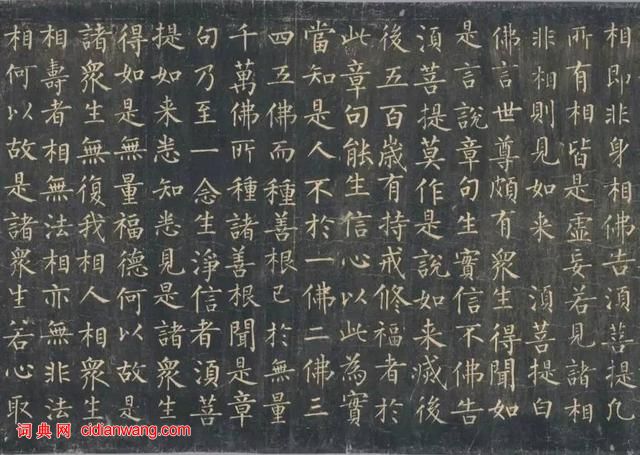 相即非身相佛告須菩提凡
所有相皆是虛妄若見諸相
非相則見如来 須菩提白
佛言世尊頗有衆生得聞如
是言說章句生實信不佛告
須菩提莫作是說如来滅後
後五百歲有持戒修福者於
此章句能生信心以此為實
當知是人不於一佛二佛三
四五佛而種善根已於無量
千萬佛所種諸善根聞是章
句乃至一念生淨信者須菩
提如来悉知悉見是諸衆生
得如是無量福德何以故是
諸衆生無復我相人相衆生
相壽者相無法相亦無非法
相何以故是諸衆生若心取
词典网 cidianwang.com